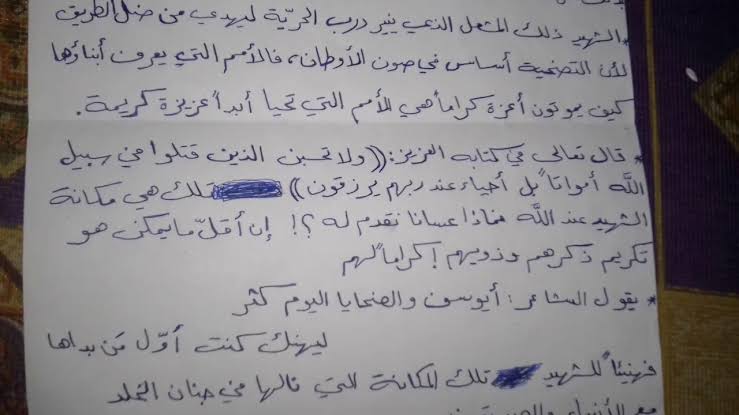 * الشهيد ذلك المشعل الذي ينير درب الحريّة ليهدي من ضل الطريق
لأن التضحية أساس في صون الأوطان، فالأمم التي يعرف أبناؤها
كيف يموتون أعزة كراماً هي الأمم التي تحيا أبداً عزيزة كريمة.
* قال تعالى في كتابه العزيز: ((ولا تحسبن الذين قتلوا في سبيل
الله أمواتاً بل أحياء عند ربهم يرزقون)) تلك هي مكانة
الشهيد عند الله فماذا عسانا نقدم له ؟! إن أقلّ ما يمكن هو
تكريم ذكرهم وذويهم إكراماً لهم
* يقول الشاعر: أيوسف والضحايا اليوم كثر
ليهنك كنت أوّل مَن بداها
فهنيئاً للشهيد تلك المكانة التي نالها في جنان الخلد
مع الأنبياء